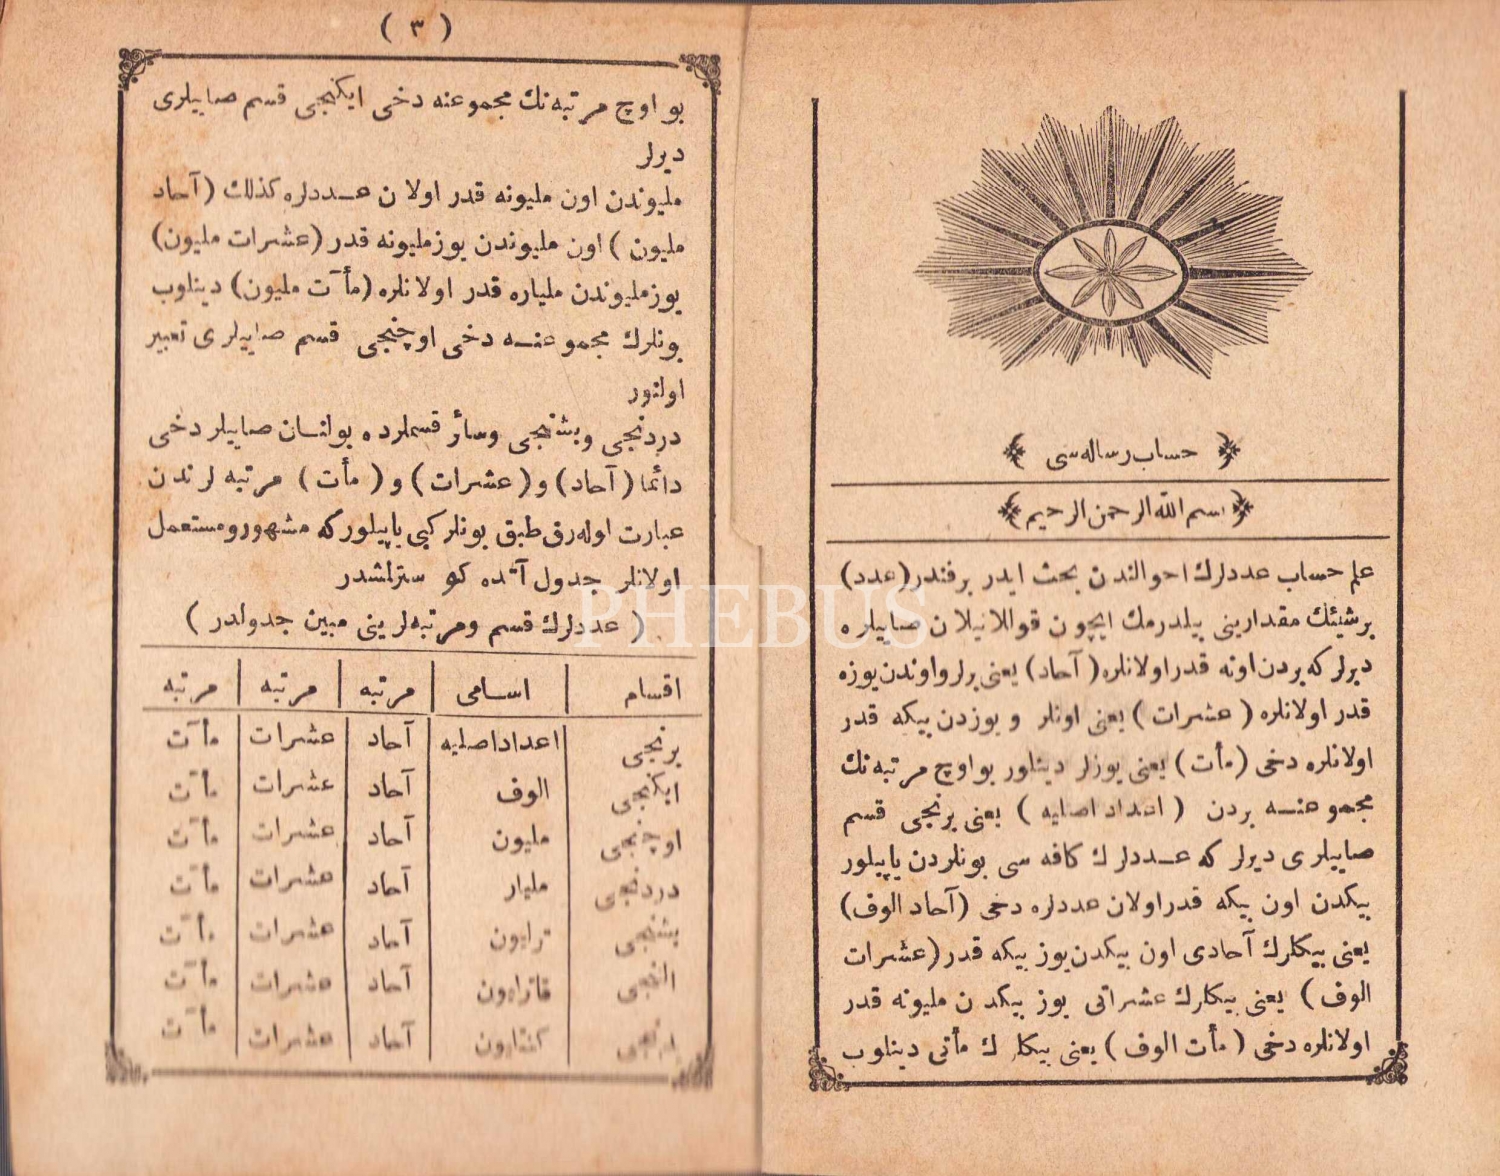 حساب رساله‌سی
بسم الله الرحمن الرحیم
علم حساب عددلرك احوالندن بحث ایدر برفندر (عدد)
برشیئك مقدارینی بیلدرمك ایچون قوللانیلان صاییلره
دیرلر که بردن اونه قدر اولانلره (آحاد) یعنی برلر و اوندن یوزه
قدر اولانلره (عشرات) یعنی اونلر و یوزدن بیكه قدر
اولانلره دخی (مأت) یعنی یوزلر دینلور بو اوچ مرتبه‌نك
مجموعنه بردن (اعداد اصلیه) یعنی برنجی قسم
صاییلری دیرلر که عددلرك کافه سی بونلردن یاپیلور
بیكدن اون بیكه قدر اولان عددلره دخی (آحاد الوف)
یعنی بیكلرك آحادی اون بیكدن یوز بیكه قدر (عشرات
الوف) یعنی بیكلرك عشراتی یوز بیكدن ملیونه قدر
اولانلره دخی (مأت الوف) یعنی بیكلرك مأتی دینلوب
(٣)
بو اوچ مرتبه‌نك مجموعنه دخی ایکنجی قسم صاییلری
دیرلر
ملیوندن اون ملیونه قدر اولان عددلره کذلك (آحاد
ملیون) اون ملیوندن یوزملیونه قدر (عشرات ملیون)
یوزملیوندن ملیاره قدر اولانلره (مأت ملیون) دینلوب
بونلرك مجموعنه دخی اوچنجی قسم صاییلری تعبیر
اولنور
دردنجی و بشنجی وسائر قسملرده بولنان صاییلر دخی
دائما (آحاد) و (عشرات) و (مأت) مرتبه لرندن
عبارت اوله‌رق طبق بونلر کبی یاپیلور که مشهور و مستعمل
اولانلر جدول آتده کوسترلشدر
(عددلرك قسم و مرتبه‌لرینی مبین جدولدر)
اقسام اسامی مرتبه مرتبه مرتبه
برنجی اعداد اصلیه آحاد عشرات مأت
ایکنجی الوف آحاد عشرات مأت
اوچنجی ملیون آحاد عشرات مأت
دردنجی ملیار آحاد عشرات مأت
بشنجی ترلیون آحاد عشرات مأت
التنجی آحاد عشرات مأت
آحاد عشرات مأت
PHEBUS